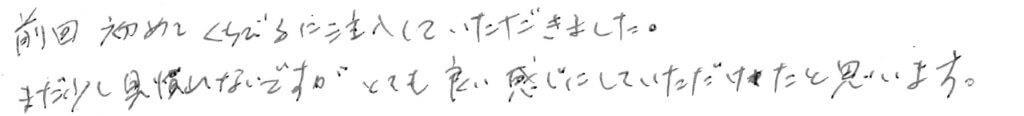 前回 初めて くちびるに注入していただきました。
まだ少し見慣れないですが とても良い感じにしていただけたと思います。